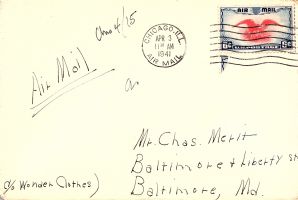 CHICAGO, ILL.
APR 3
11 30 AM
1941
AIR MAIL
AIR MAIL
6¢ U.S. POSTAGE 6¢
Air Mail
Mr. Chas. Merit
Baltimore & Liberty sts
c/o Wonder Clothes)
Baltimore, Md.